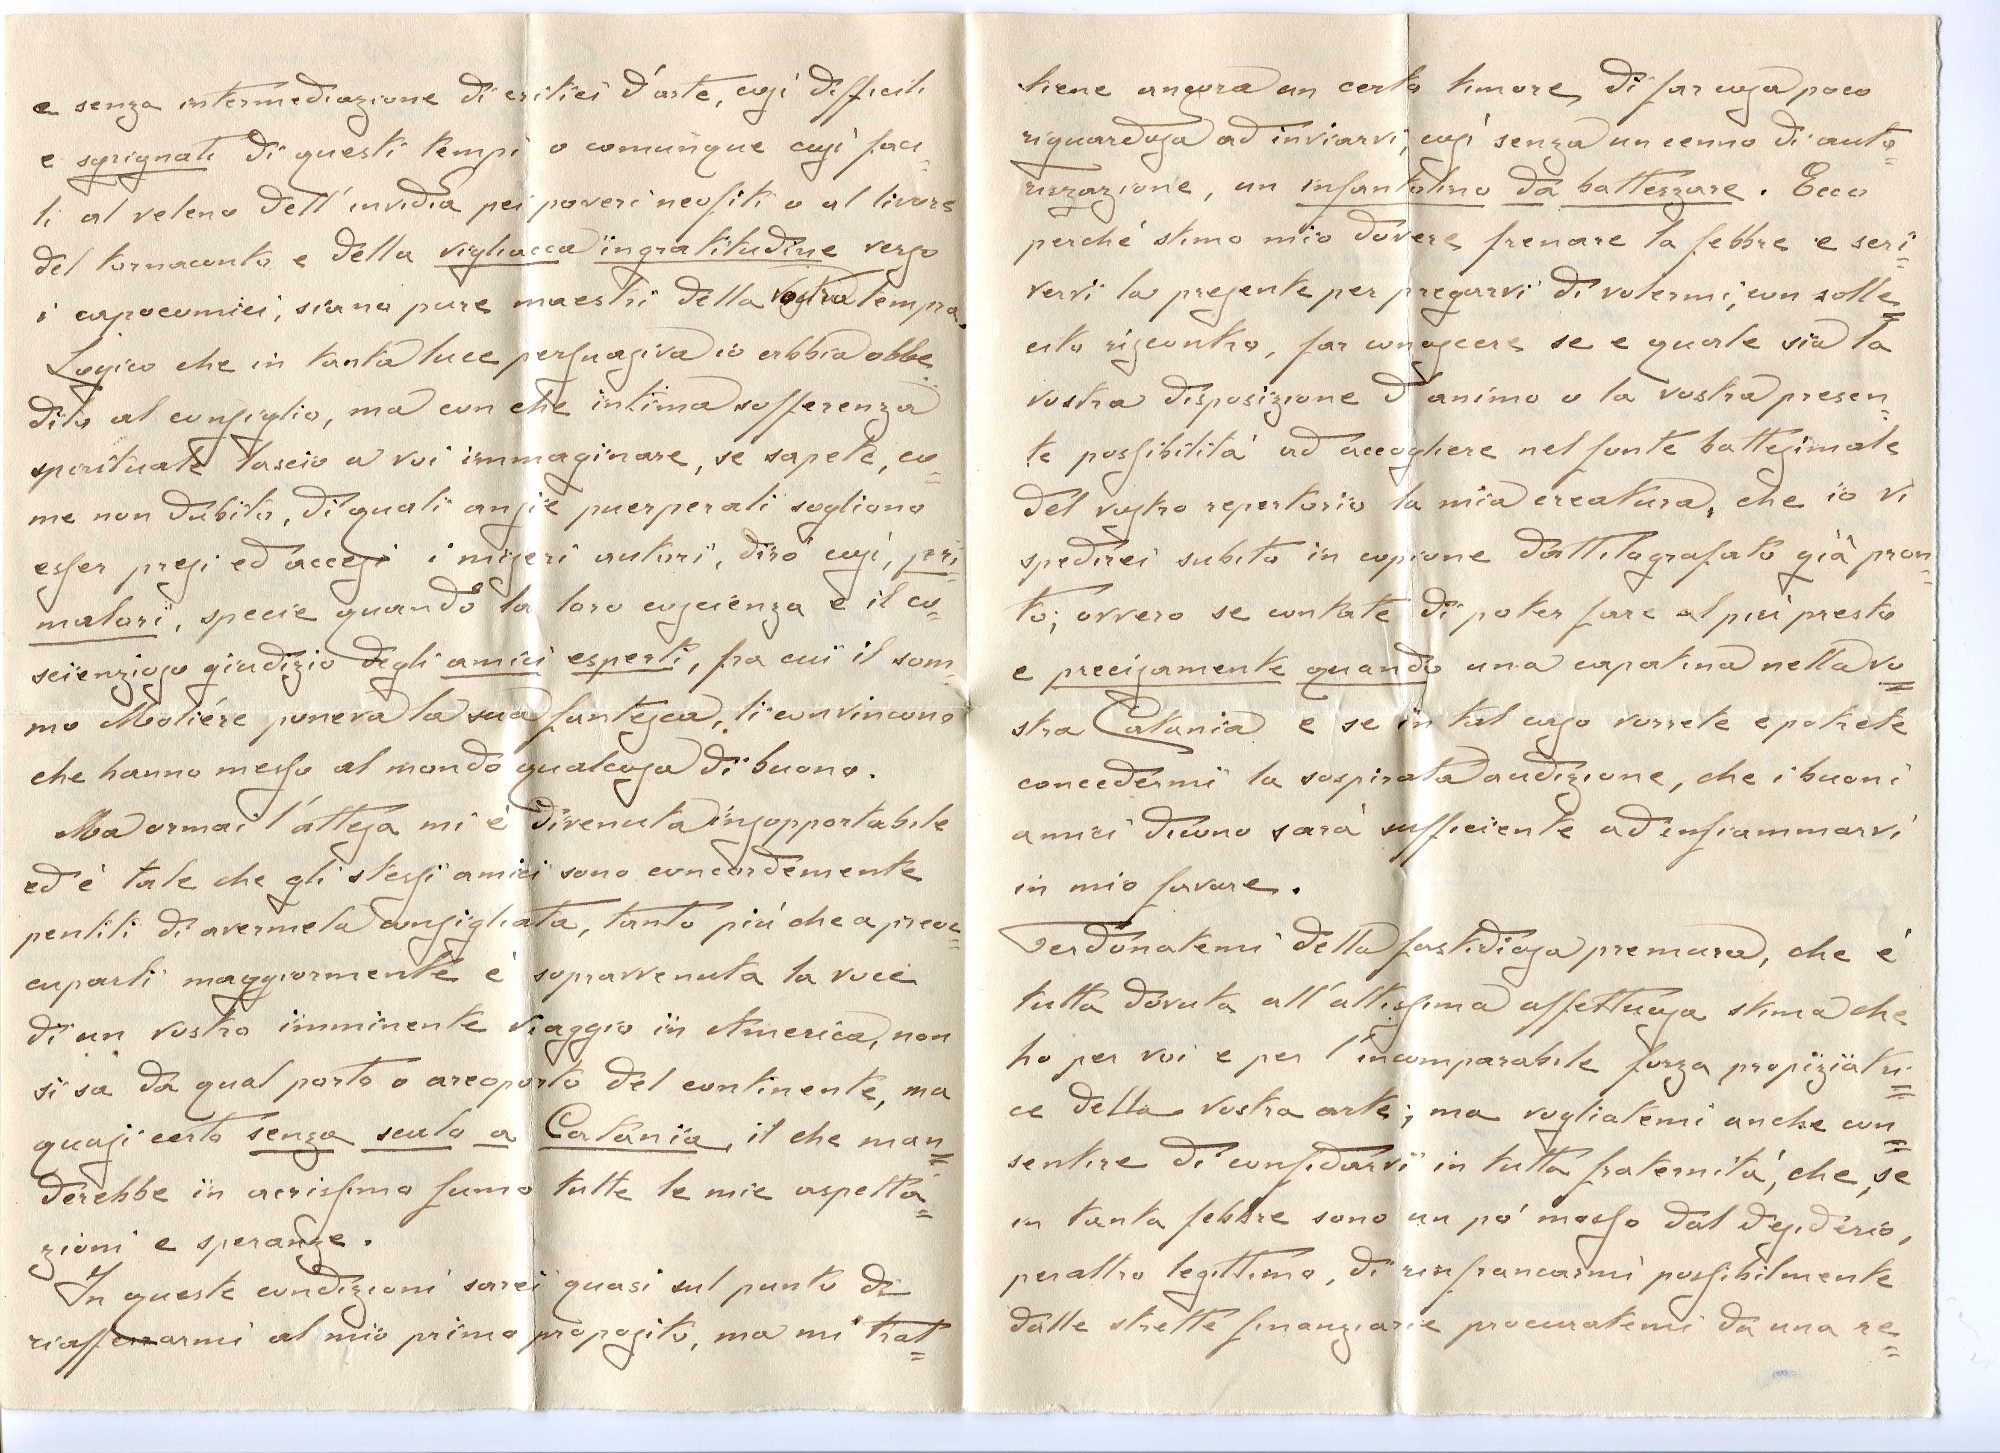 e senza intermediazione di critici d'arte, così difficili
e sprignati di questi tempi o comunque così faci=
li al veleno dell'invidia pei poveri neofiti o al livore
del tornaconto e della vigliacca ingratitudine verso
i capocomici, siano pure maestri della vostra tempra.
Logico che in tanta luce persuasiva io abbia obbe=
dito al consiglio, ma con che intima sofferenza
spirituale lascio a voi immaginare, se sapete, co=
me non dubito, di quali ansie puerperali sogliono
esser presi ed accesi i miseri autori, dirò così, pri=
matori, specie quando la loro coscienza e il co=
scienzioso giudizio degli amici esperti, fra cui il som=
mo Moliére poneva la sua fantesca, li convincono
che hanno messo al mondo qualcosa di buono.
Ma ormai l'attesa mi è divenuta insopportabile
ed è tale che gli stessi amici sono concordemente
pentiti di avermela consigliata, tanto più che a preoc=
cuparli maggiormente è sopravvenuta la voce
di un vostro imminente viaggio in America, non
si sa da qual porto o areoporto del continente, ma
quasi certo senza scalo a Catania, il che man=
derebbe in acrissimo fumo tutte le mie aspetta=
zioni e speranze.
In queste condizioni sarei quasi sul punto di
riafferrarmi al mio primo proposito, ma mi trat=
tiene ancora un certo timore di far cosa poco
riguardosa ad inviarvi, così senza un cenno di auto=
rizzazione, un infantolino da battezzare. Ecco
perché stimo mio dovere frenare la febbre e scri=
vervi la presente per pregarvi di volermi, con solle=
cito riscontro, far conoscere se e quale sia la
vostra disposizione d'animo o la vostra presen=
te possibilità ad accogliere nel fonte battesimale
del vostro repertorio la mia creatura, che io vi
spedirei subito in copione dattilografato già pron=
to; ovvero se contate di poter fare al più presto
e precisamente quando una capatina nella vo=
stra Catania e se in tal caso vorrete e potrete
concedermi la sospirata audizione, che i buoni
amici dicono sarà sufficiente ad infiammarvi
in mio favore.
Perdonatemi della fastidiosa premura, che è
tutta dovuta all'altissima affettuosa stima che
ho per voi e per l'incomparabile forza propiziatri=
ce della vostra arte; ma vogliatemi anche con=
sentire di confidarvi in tutta fraternità, che, se
in tanta febbre sono un po' mosso dal desiderio,
peraltro legittimo, di rinfrancarmi possibilmente
dalle strette finanziarie procuratemi da una re=